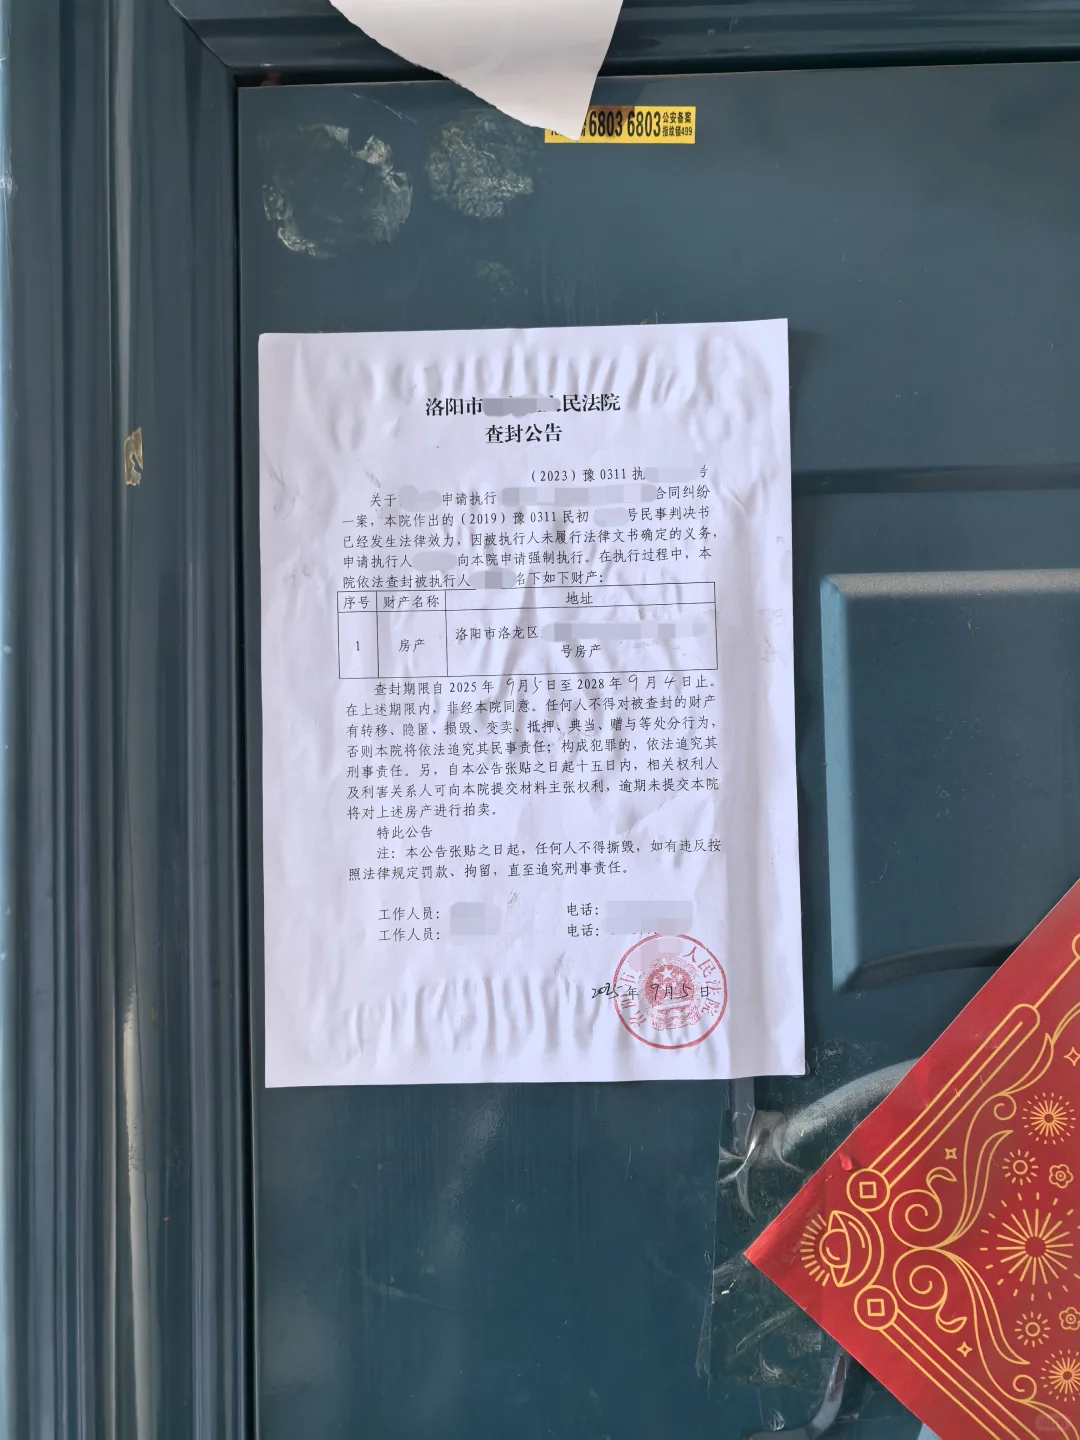 6803 6803 公安备案
指纹锁499
洛阳市 人民法院
查封公告
(2023)豫0311执 号
关于 申请执行 合同纠纷
一案，本院作出的(2019)豫0311民初 号民事判决书
已经发生法律效力，因被执行人未履行法律文书确定的义务，
申请执行人 向本院申请强制执行。在执行过程中，本
院依法查封被执行人 名下如下财产：
序号 财产名称 地址
1 房产 洛阳市洛龙区
号房产
查封期限自2025年9月5日至2028年9月4日止。
在上述期限内，非经本院同意。任何人不得对被查封的财产
有转移、隐匿、损毁、变卖、抵押、典当、赠与等处分行为，
否则本院将依法追究其民事责任；构成犯罪的，依法追究其
刑事责任。另，自本公告张贴之日起十五日内，相关权利人
及利害关系人可向本院提交材料主张权利，逾期未提交本院
将对上述房产进行拍卖。
特此公告
注：本公告张贴之日起，任何人不得撕毁，如有违反按
照法律规定罚款、拘留，直至追究刑事责任。
工作人员： 电话：
工作人员： 电话：
2025年9月5日
人民法院